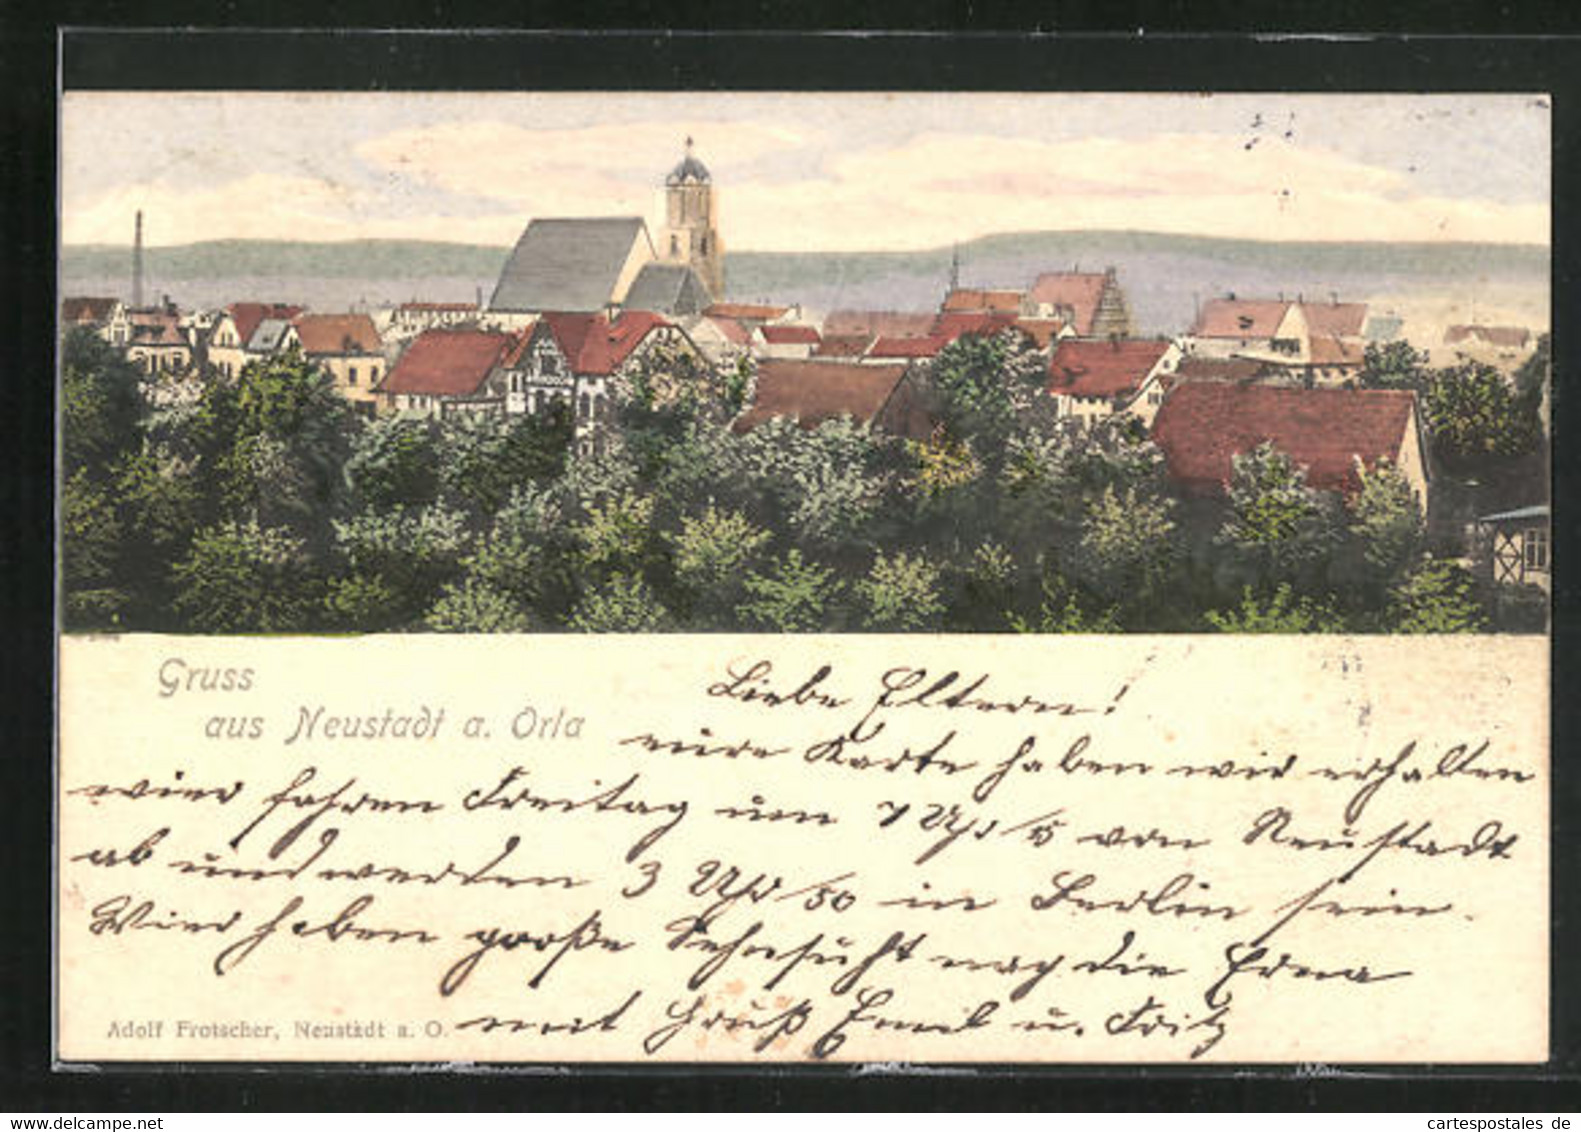 Gruss
aus Neustadt a. Orla
Liebe Eltern!
eure Karte haben wir erhalten
wier fahren Freitag um 7 Uhr 5 von Neustadt
ab und werden 3 Uhr 50 in Berlin sein.
Wier haben große Sehnsucht nach die Erna
mit Gruß Emil u. Fritz
Adolf Frotscher, Neustadt a. O.
cartespostales de